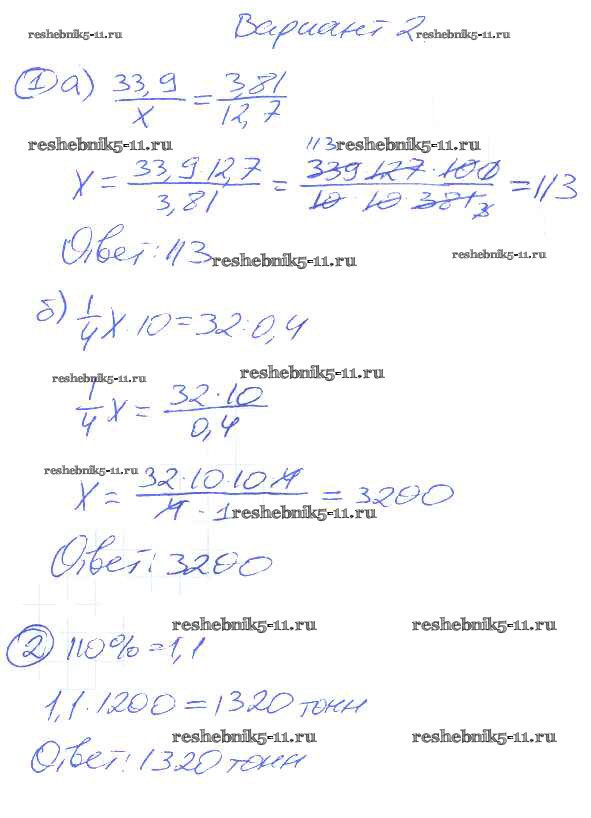 Вариант 2
reshebnik5-11.ru reshebnik5-11.ru
1 а) 33,9/x = 3,81/12,7
reshebnik5-11.ru 113 reshebnik5-11.ru
x = 33,9·12,7/3,81 = 339·127·100/10·10·381 3 = 113
Ответ: 113
reshebnik5-11.ru reshebnik5-11.ru
б) 1/4 x · 10 = 32 : 0,4
reshebnik5-11.ru reshebnik5-11.ru
1/4 x = 32·10/0,4
reshebnik5-11.ru
x = 32·10·10·4/4·1 = 3200
reshebnik5-11.ru
Ответ: 3200
reshebnik5-11.ru reshebnik5-11.ru
2 110% = 1,1
1,1·1200 = 1320 тонн
reshebnik5-11.ru reshebnik5-11.ru
Ответ: 1320 тонн